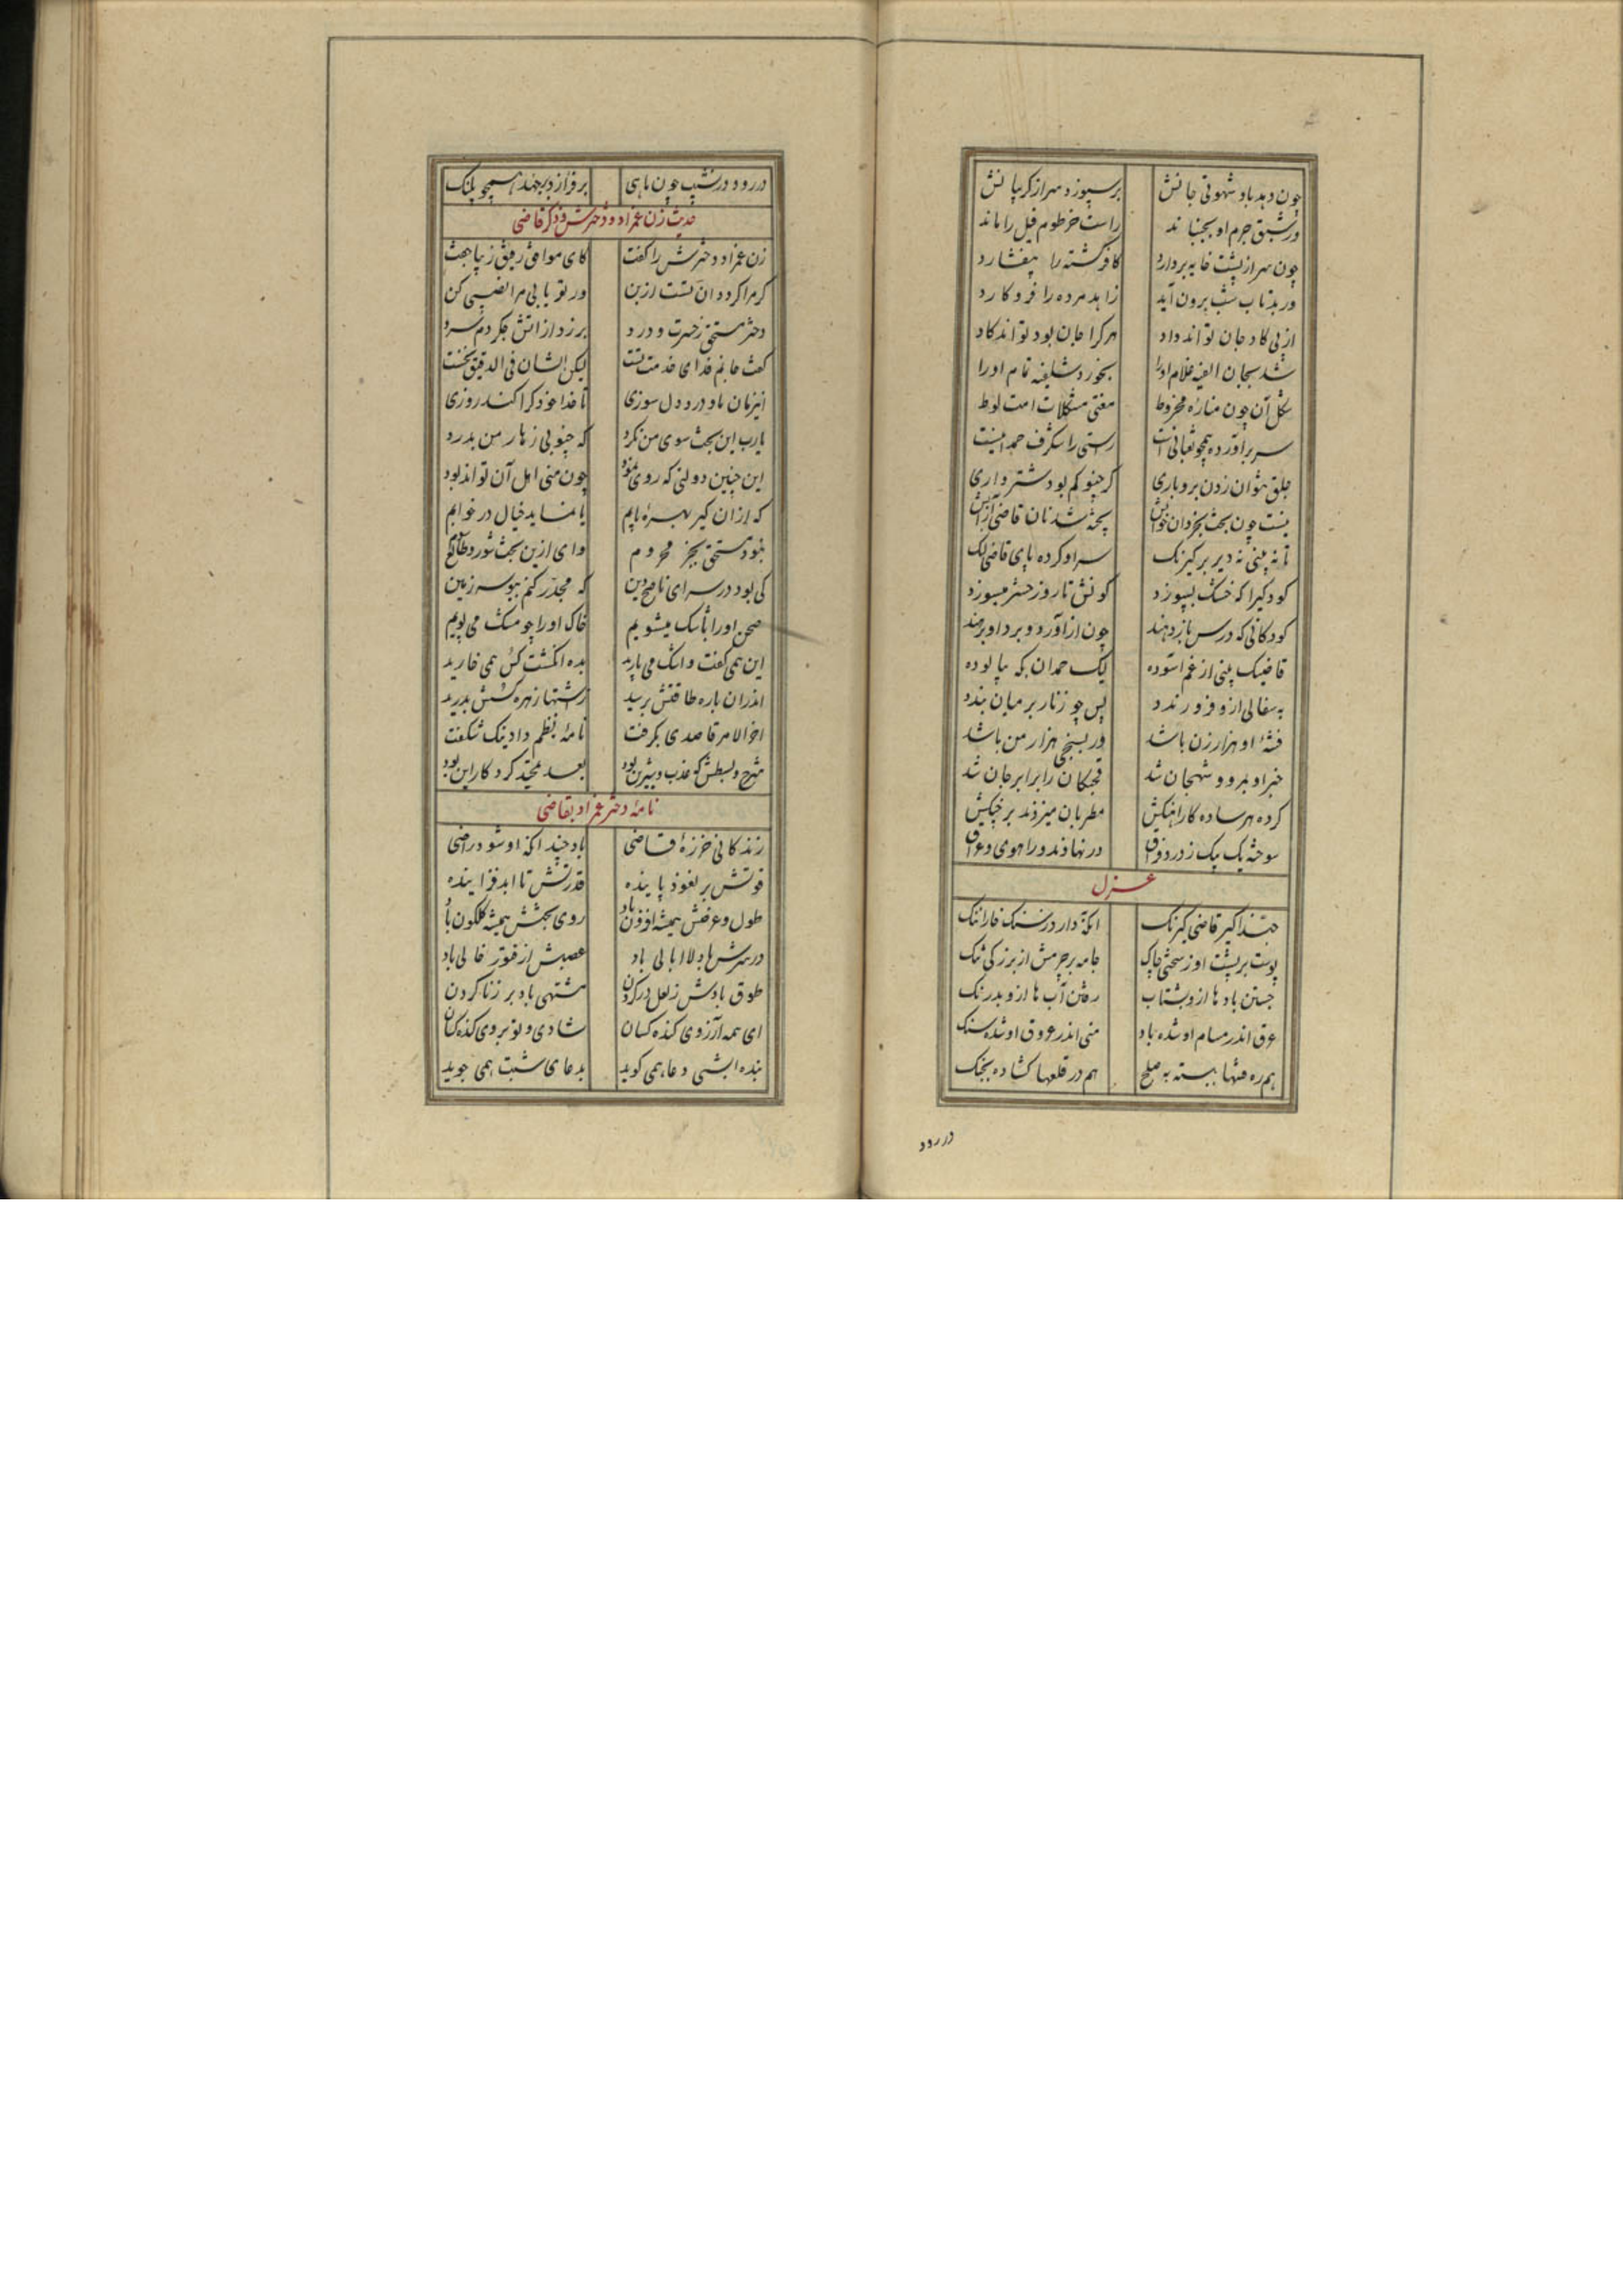 چون دهد باد شهوتی جانش برسپوزد سر از کریبانش
ور شبق جرم او بجنباند راست خرطوم فیل را ماند
چون سر از پشت خایه بردارد کافر کشته را بیفشارد
در بدتاب شب برون آید زاهد مرده را فرو کارد
از پی کاد جان تواند داد هر کرا جان بود تواند کاد
شد بجان الفیه غلام او را بخورد شلفیه تمام او را
شکل آن چون مناره مخروط مفتی مشکلات امت لوط
سر برآورده همچو ثعبانیست راستی را شکرف حمدانیست
جلق نتوان زدن بر و باری کر چنو کم بود شترواری
نیست چون بحث بخردان خوابش پخته شد نان قاضی از آبش
تا نه بینی نه دیر بر کیرنک سر او کرده پای قاضی لنک
کودکیرا که خشک بسپوزد کونش تا روز حشر میسوزد
کودکانی که درس باز دهند چون از آورد و برد او برهند
قاضیک بینی از غم آسوده لیک حمدان بکه بپالوده
به سفالی ازو فرو رندد پس چو زنار بر میان بندد
فتنهٔ او هزار زن باشد ور بسنجی هزار من باشد
خبر او بمرو و شهجان شد قحبکان را برابر جان شد
کرده هر ساده کار آهنکیش مطربان میزنند بر چنکیش
سوخته یک بیک ز درد فراق در نهاوند و راهوی و عراق
غزل
حبذا کیر قاضی کیرنک آنکه دارد ز سنک خارا ننک
پوست بر پشت او ز سختی چاک جامه بر جرمش از بزرکی تنک
جستن بادها ازو بشتاب رفتن آب ها ازو بدرنک
عرق اندر مسام او شده باد منی اندر عروق او شده سنک
هم ره فتنها ببسته به صلح هم در قلعها کشاده بجنک
دررود
دررود در نشیب چون ماهی بر فراز دبجهند همچو پلنک
حدیث زن عمزاد و دخترش و ذکر قاضی
زن عمزاد دخترش را کفت کای موافق رفیق زیبا جفت
کر مرا کردد آن بتست ازین ور تو یابی مرا نصیبی کن
دختر مستحق ز حسرت و درد برزد از آتش جکر دم سرد
کفت جانم فدای خدمت تست لیکن الشان فی الدقیق نخست
این زمان باد درد و دل سوزی تا خدا خود کرا کند روزی
یارب این بحث سوی من نکرد که چنویی زهار من بدرد
این چنین دولتی که روی نمود چون منی اهل آن تواند بود
که از آن کیر بهره یابم یا نماید خیال در خوابم
نبود مستحق بجز محروم وای ازین بحث شور و طالع
کی بود در سرای ناصح دین که مجدر کنم ببوسه زمین
صحن او را باشک میشویم خاک او را چو مشک می بویم
این همی کفت و اشک می بارید بده انکشت کس همی خارید
اندران باره طاقتش برسید رشتها زهره کسش بدرید
آخر الامر قاصدی بکرفت نامهٔ نظم داد نیک شکفت
شرح و بسطش که عذب و شیرین بود بعد تحیت کرد کار این بود
نامهٔ دختر عمزاد بقاضی
زندکانی خرزهٔ قاضی باد چند آنکه او شود راضی
قوتش بر نعوذ پاینده قدرتش تا ابد فزاینده
طول و عرضش همیشه افزون باد روی بختش همیشه کلکون باد
در سرش باد لاابالی باد عصبش از فتور خالی باد
طوق بادش ز لعل در کردن مشتهی باد بر زنا کردن
ای همه آرزوی کنده کسان شادی و تو بروی کنده کسان
بنده ابشی دعا همی کوید بدعای شبت همی جوید